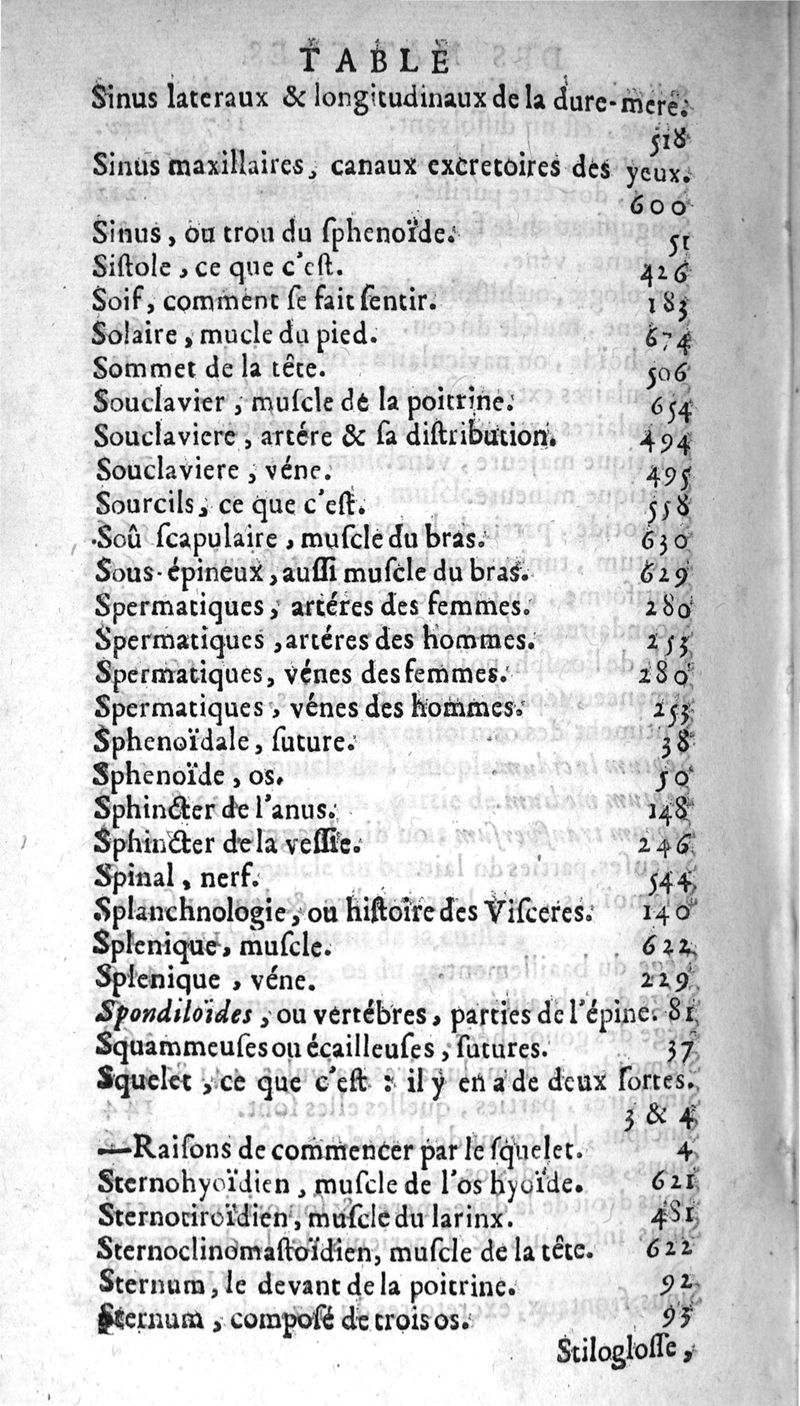 TABLE
Sinus lateraux & longitudinaux de la dure-mere.
518
Sinus maxillaires, canaux excretoires des yeux.
600
Sinus, ou trou du ſphenoïde. 51
Siſtole, ce que c'eſt. 426
Soif, comment ſe fait ſentir. 183
Solaire, mucle du pied. 674
Sommet de la tête. 506
Souclavier, muſcle de la poitrine. 654
Souclaviere, artére & ſa diſtribution. 494
Souclaviere, véne. 495
Sourcils, ce que c'eſt. 558
Soû ſcapulaire, muſcle du bras. 630
Sous-épineux, auſſi muſcle du bras. 629
Spermatiques, artéres des femmes. 280
Spermatiques, artéres des hommes. 253
Spermatiques, vénes des femmes. 280
Spermatiques, vénes des hommes. 253
Sphenoïdale, ſuture. 38
Sphenoïde, os. 50
Sphincter de l'anus. 148
Sphincter de la veſſie. 246
Spinal, nerf. 544
Splanchnologie, ou hiſtoire des Viſceres. 140
Splenique, muſcle. 622
Splenique, véne. 229
Spondiloïdes, ou vertébres, parties de l'épine. 81
Squammeuſes ou écailleuſes, ſutures. 37
Squelet, ce que c'eſt : il y en a de deux ſortes.
3 & 4
—Raiſons de commencer par le ſquelet. 4
Sternohyoïdien, muſcle de l'os hyoïde. 621
Sternotiroïdien, muſcle du larinx. 481
Sternoclinomaſtoïdien, muſcle de la tête. 622
Sternum, le devant de la poitrine. 92
Sternum, compoſé de trois os. 93
Stilogloſſe,